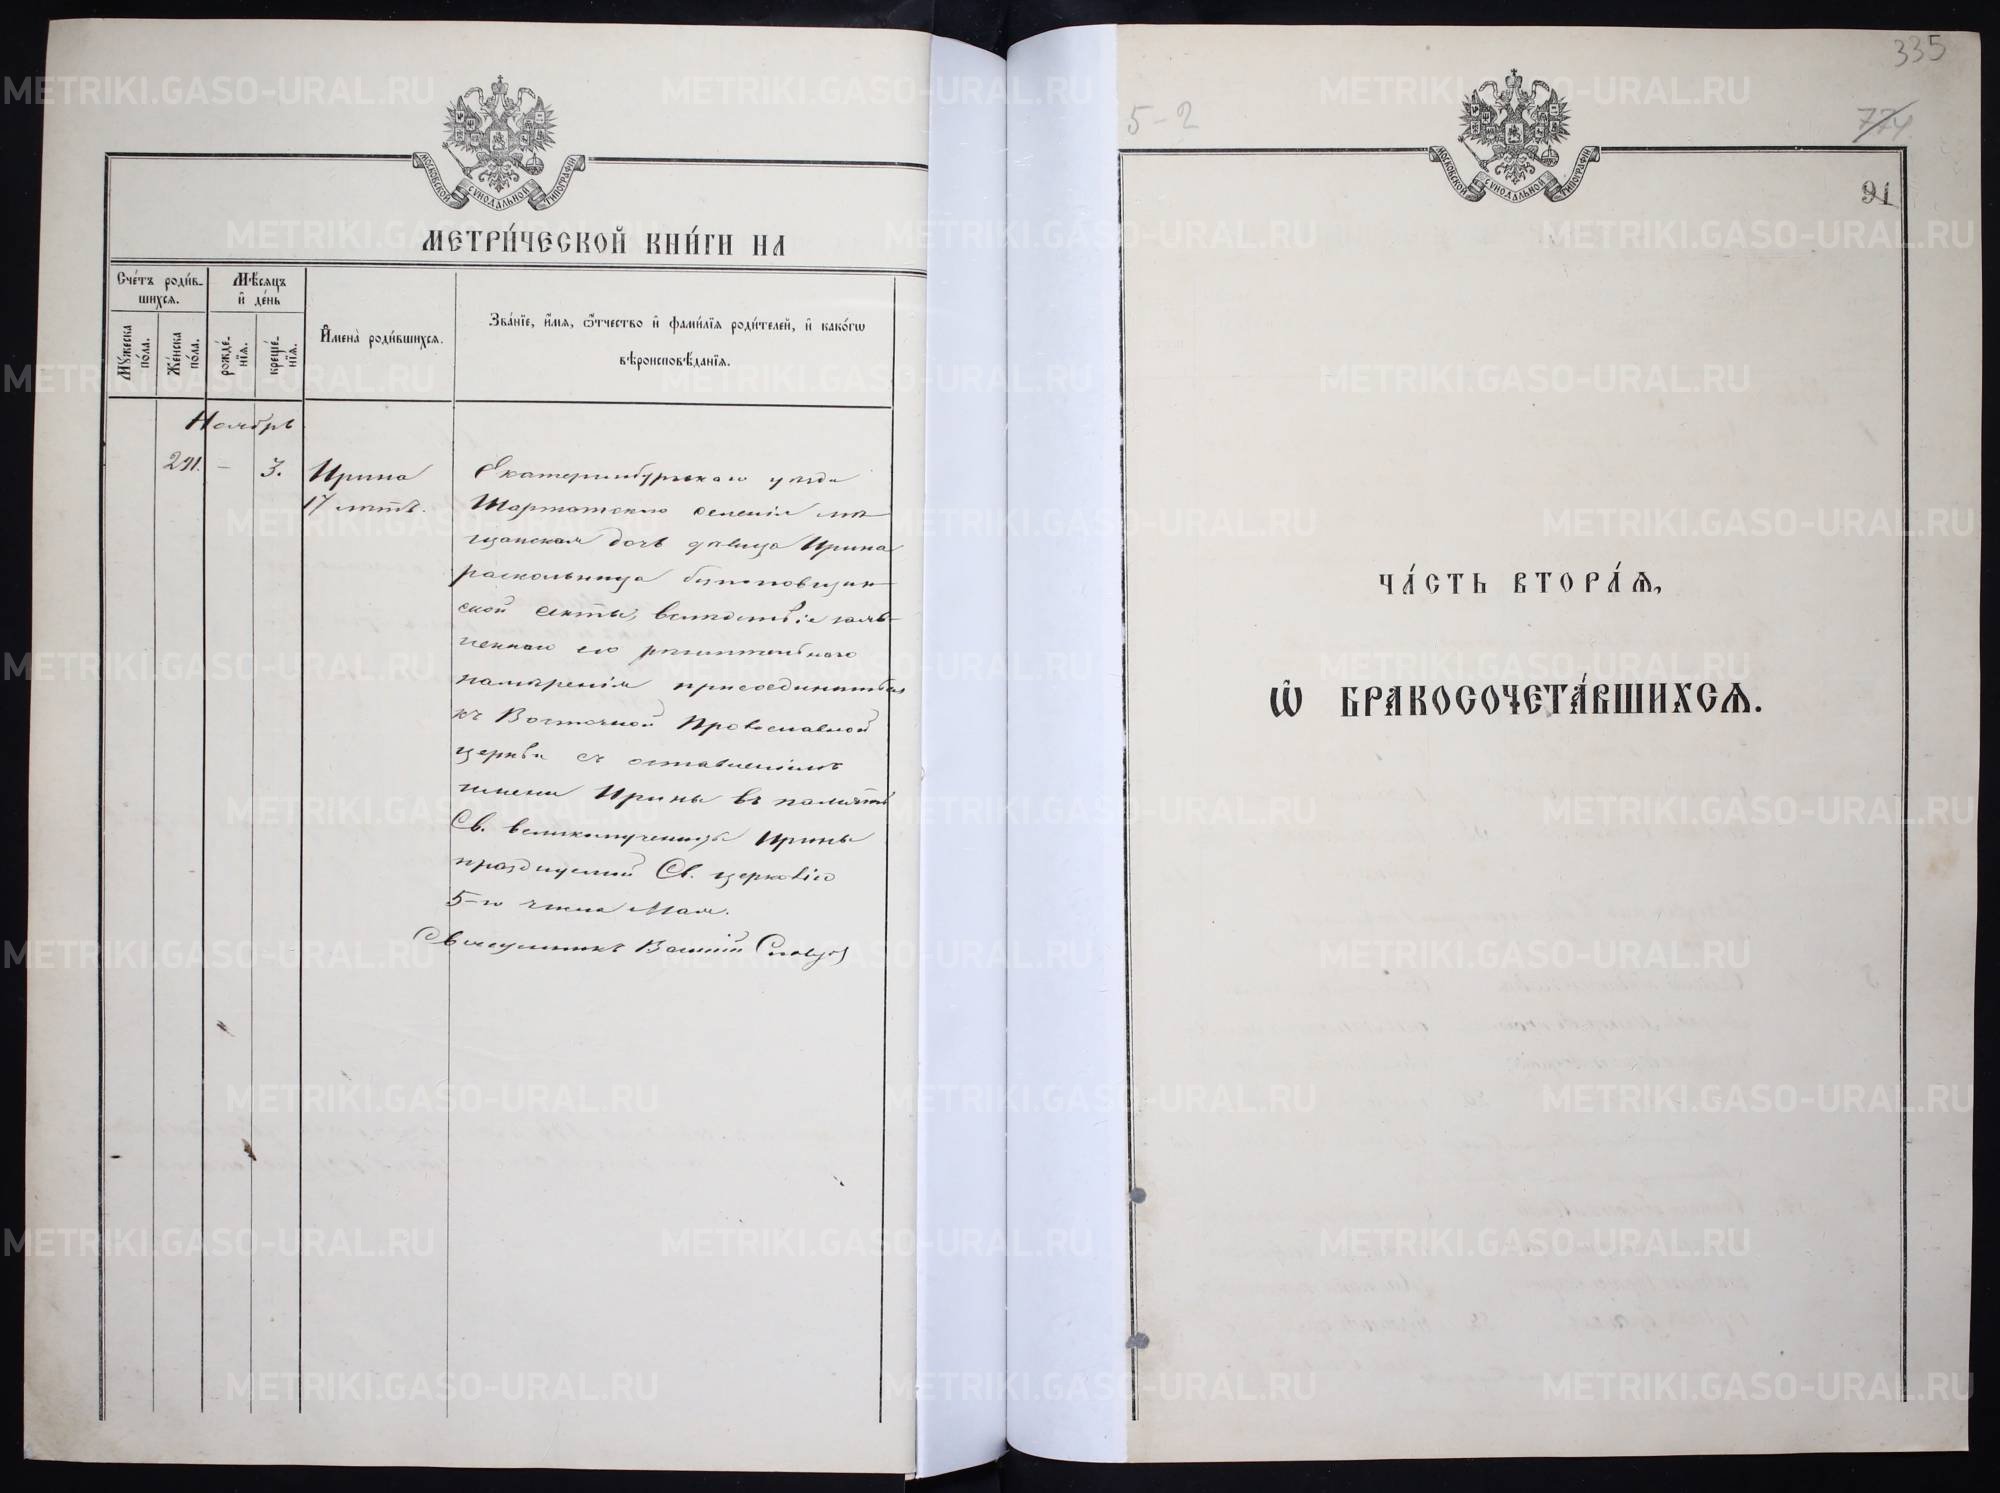 МОСКОВСКОЙ СѴНОДАЛЬНОЙ ТИПОГРАФІИ
МЕТРИ́ЧЕСКОЙ КНИ́ГИ НА
Сче́тъ роди́в-
шихся.
Мѣсяцъ
и҆ де́нь
Мꙋжеска
по́ла.
Же́нска
по́ла.
рожде́-
нїя.
креще́-
нїя.
И҆мена̀ роди́вшихся.
Зва́нїе, и҆́мя, ѻ҆́тчество и҆ фами́лїя роди́телей, и҆ како́гѡ
вѣроисповѣ́данїя.
Ноябрь
291. — 3.
Ирина
17 лѣтъ.
Екатеринбургскаго уѣзда
Шарташскаго селенія мѣ-
щанская дочь дѣвица Ирина
раскольница безпоповщин-
ской секты, вслѣдствіе заяв-
леннаго ею рѣшительнаго
намѣренія присоединиться
къ Восточной Православной
церкви съ оставленіемъ
имени Ирины въ память
Св. великомученицы Ирины
празднуемой Св. церковію
5-го числа Мая.
Священникъ Василій Словцовъ
335
774
5-2
МОСКОВСКОЙ СѴНОДАЛЬНОЙ ТИПОГРАФІИ
91
ЧА́СТЬ ВТОРА́Ѧ,
Ѽ БРАКОСОЧЕТА́ВШИХСѦ.
METRIKI.GASO-URAL.RU